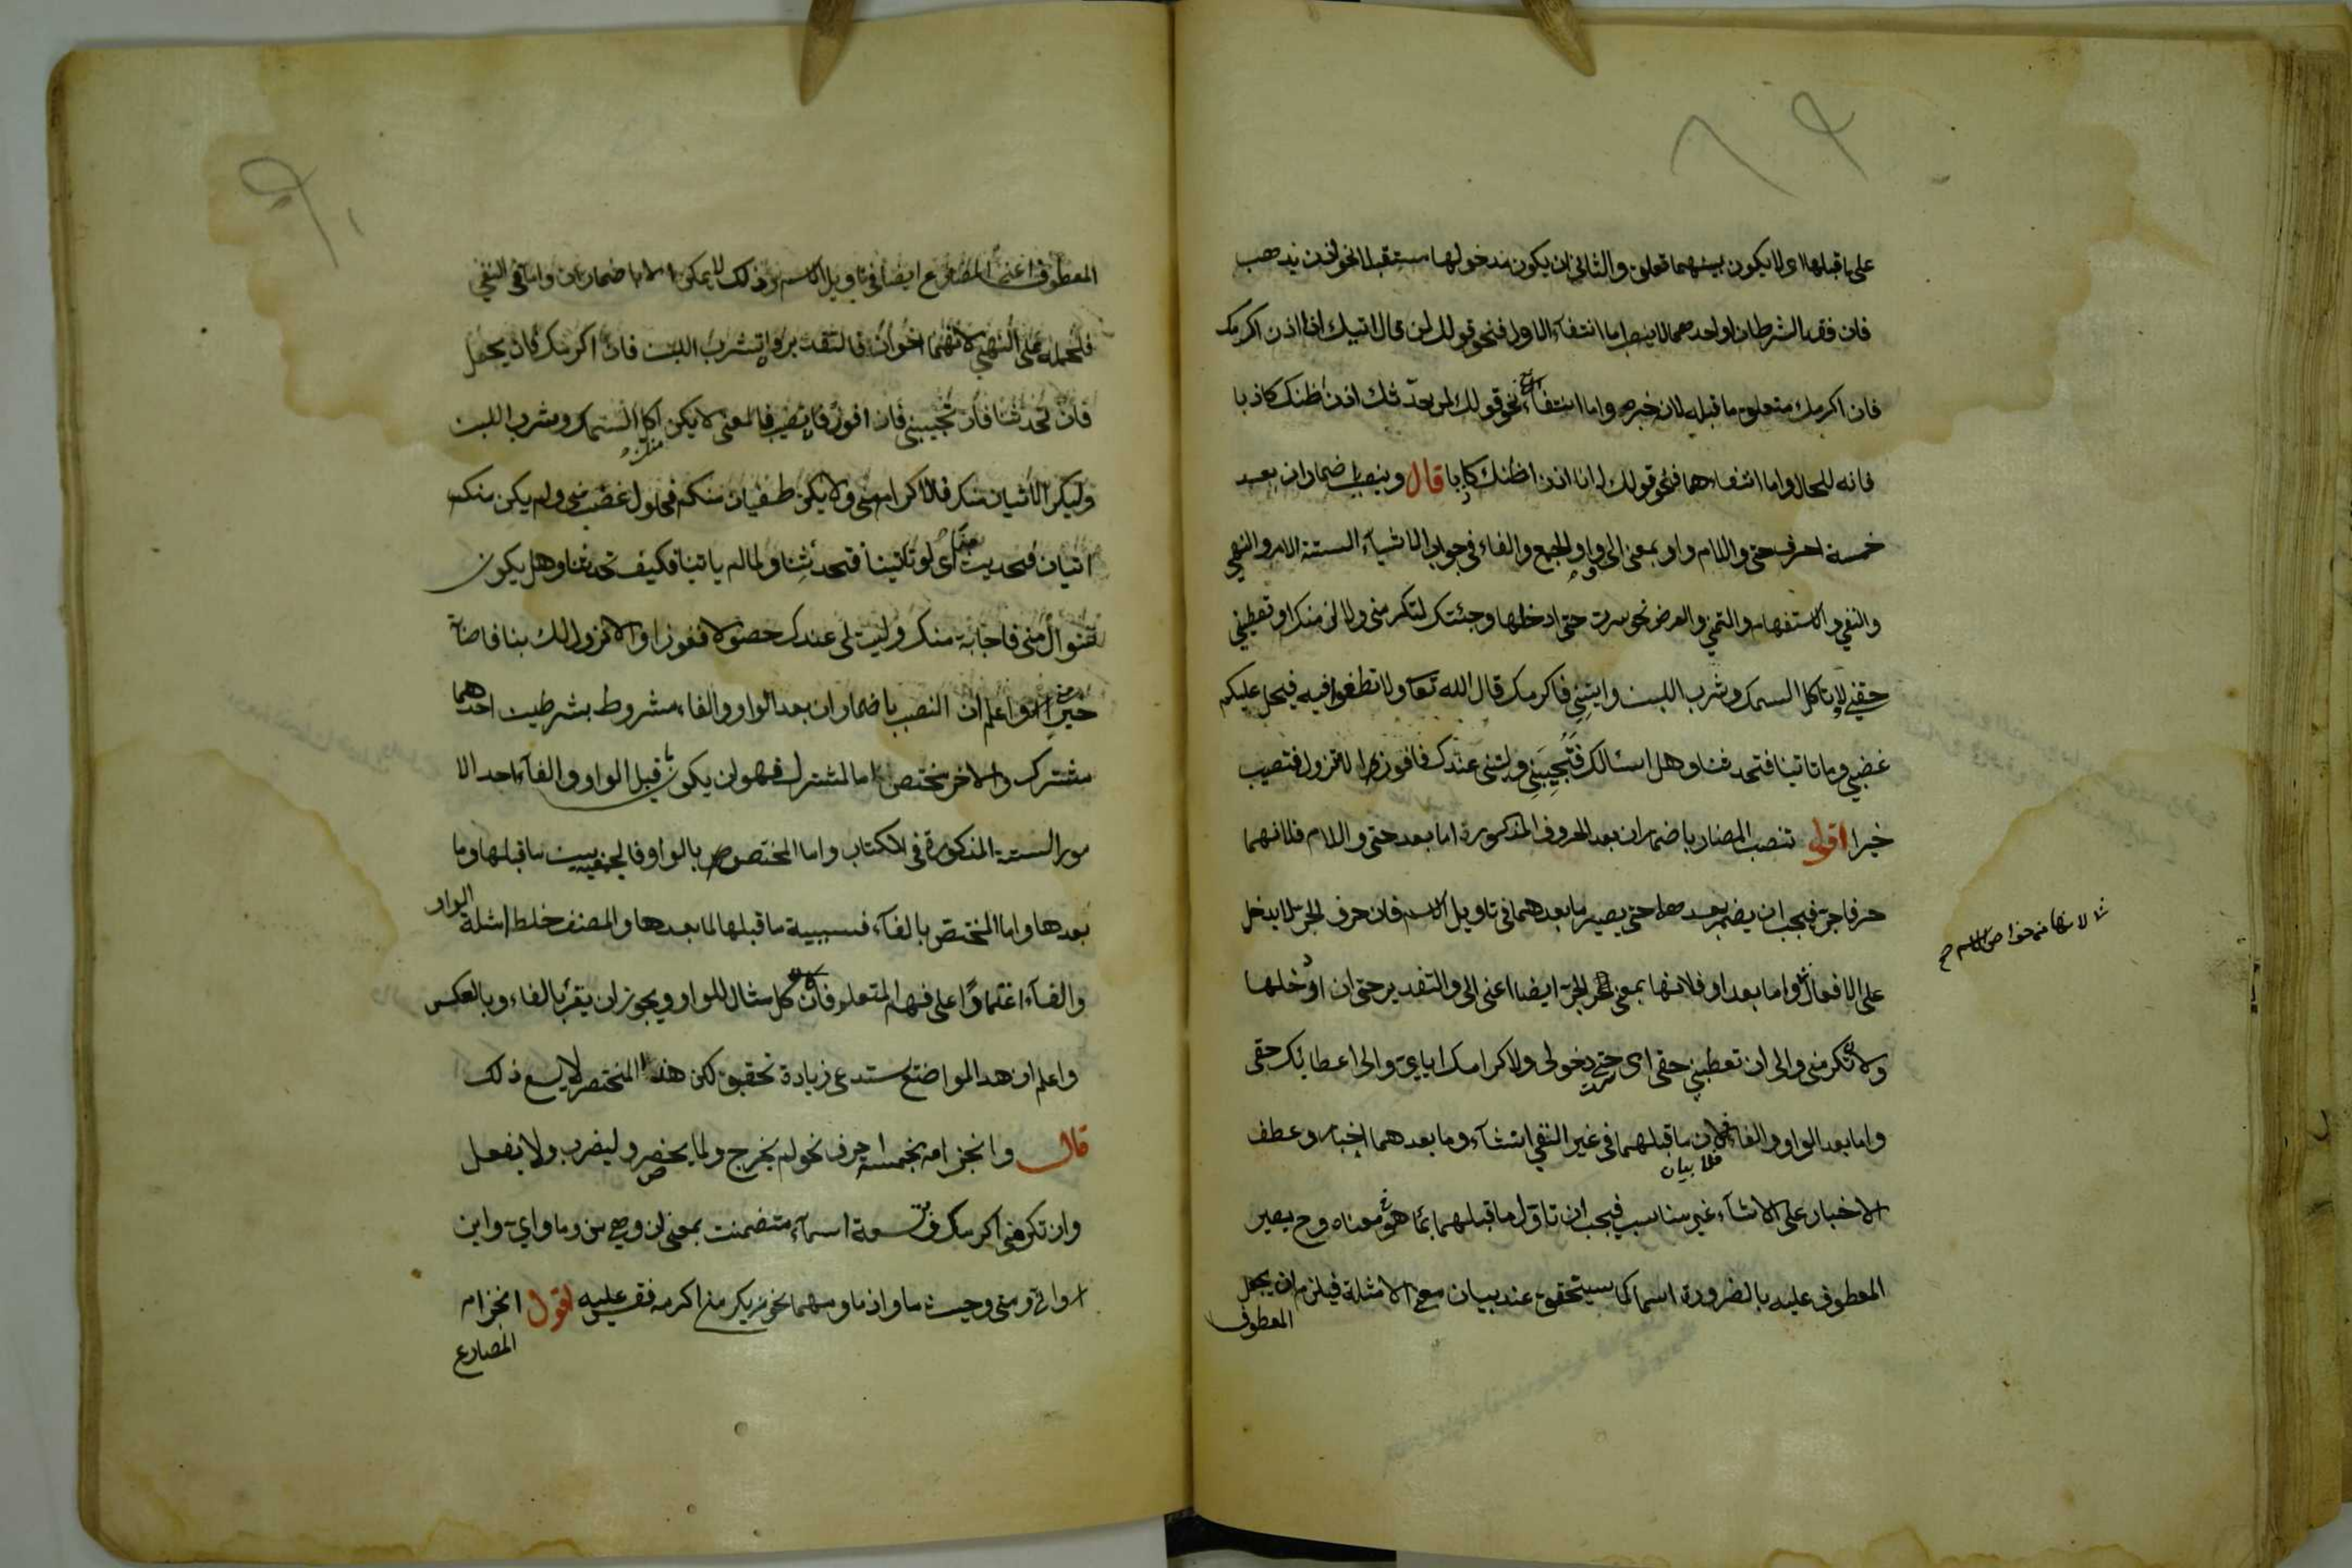 على ما قبلها اى لا يكون بينهما تعلق والثانى ان يكون مدخولها مستقبلا نحو اذن يذهب
فان فقد الشرطان او احدهما لا ينصب اما انتفاء الاول فنحو قولك لمن قال اتيك انا اذن اكرمك
فان اكرمك متعلق بما قبله لانه خبره واما انتفاء نحو قولك لمن يحدثك اذن اظنك كاذبا
فانه للحال واما انتفاءهما فنحو قولك انا اذن اظنك كاذبا قال وينصب باضمار ان بعد
خمسة احرف حتى واللام واو بمعنى الى وواو الجمع والفاء فى جواب الاشياء الستة الامر والنهى
والنفى والاستفهام والتمنى والعرض نحو سرت حتى ادخلها وجئتك لتكرمنى ولالزمنك او تعطينى
حقى ولا تاكل السمك وتشرب اللبن وايتنى فاكرمك قال الله تعا ولا تطغوا فيه فيحل عليكم
غضبى وما تاتينا فتحدثنا وهل اسئلك فتجيبنى وليتنى عندك فافوز والا تنزل فتصيب
خيرا اقول تنصب المضارع باضمار ان بعد الحروف المذكورة اما بعد حتى واللام فلانهما
حرفا جر فيجب ان يضمر بعدهما حتى يصير ما بعدهما فى تاويل الاسم فان حرف الجر لا يدخل
لانها من خواص الاسم صح
على الافعال واما بعد او فلانها بمعنى حرف الجر ايضا اعنى الى والتقدير حتى ان ادخلها
ولان تكرمنى والى ان تعطينى حقى اى حتى دخولى ولاكرامك اياى والى اعطائك حقى
واما بعد الواو والفاء فلان ما قبلهما فى غير النفى انشاء وما بعدهما اخبار وعطف
الاخبار على الانشاء غير مناسب فيجب ان تاول ما قبلهما بما هو معناه وح يصير
المعطوف عليه بالضرورة اسما كما سيتحقق عند بيان مع الامثلة فيلزم ان يجعل
المعطوف
المعطوف اعنى المضارع ايضا فى تاويل الاسم وذلك لا يمكن الا باضمار ان واما فى النفى
فلحمله على النهى لانهما اخوان فالتقدير وان تشرب اللبن فان اكرمك فان يحل
فان تحدثنا فان تجيبنى فان افوز فان تصيب فالمعنى لا يكن اكل السمك وشرب اللبن
وليكن اتيان منك فاكرام منى ولا يكن طغيان منكم فحلول غضب منى ولم يكن منك
اتيان فتحديث اى لو تاتينا فتحدثنا ولما لم ياتينا فكيف تحدثنا وهل يكون
سؤال منى فاجابة منك وليت لى عندك حضورا ففوزا والا نزول لك بنا فاصابة
خير واعلم ان النصب باضمار ان بعد الواو والفاء مشروط بشرطين احدهما
مشترك والاخر مختص اما المشترك فهو ان يكون قبل الواو والفاء احد الا
مور الستة المذكورة فى الكتاب واما المختص بالواو فالجمعية بين ما قبلها وما
بعدها واما المختص بالفاء فسببية ما قبلها لما بعدها والمصنف خلط امثلة الواو
والفاء اعتمادا على فهم المتعلم فان كل مثال للواو ويجوز ان يقرء بالفاء وبالعكس
واعلم ان هذا المواضع يستدعى زيادة تحقيق لكن هذا المختصر لا يسع ذلك
قال وانجزامه بخمسة احرف نحو لم يخرج ولما يحضر وليضرب ولا يفعل
وان تكرمنى اكرمك وتسعة اسماء متضمنة بمعنى ان وهى من وما واى واين
وانى ومتى وحيثما واذما ومهما نحو من يكرمنى اكرمه فقس عليه اقول انجزام
المضارع